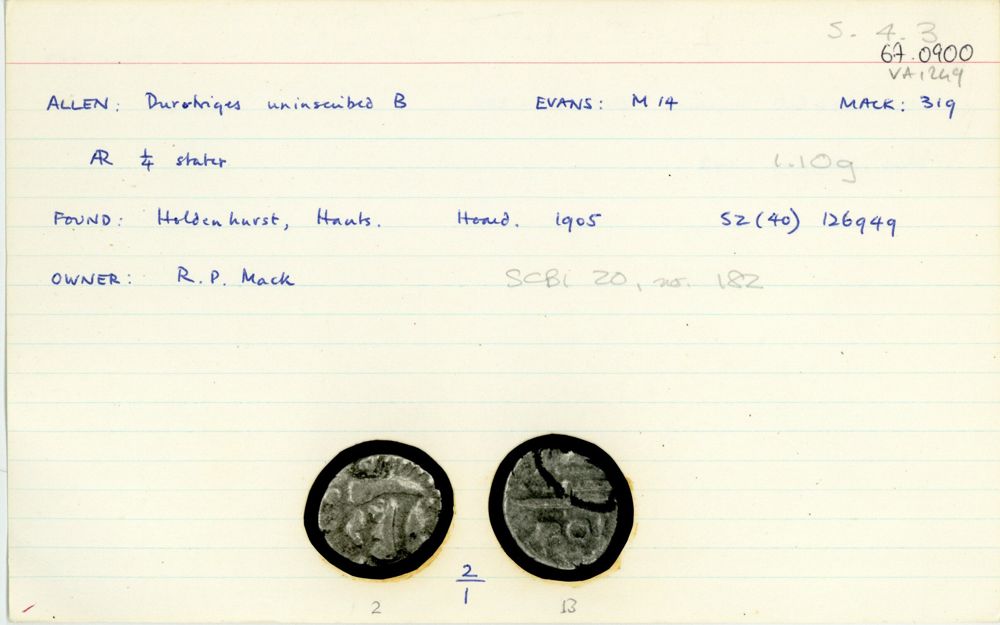 S. 4. 3
67.0900
VA 1249
ALLEN: Durotriges uninscribed B EVANS: M 14 MACK: 319
AR ¼ stater 1.10g
FOUND: Holdenhurst, Hants. Hoard. 1905 SZ (40) 126949
OWNER: R. P. Mack SCBI 20, no. 182
2
1
2 13